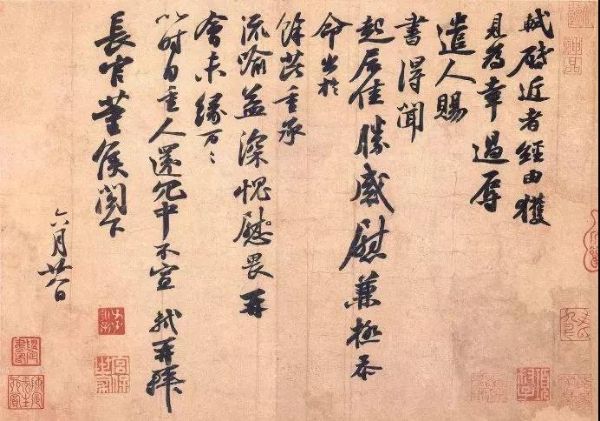 軾啟近者經由獲
見為幸過辱
遣人賜
書得聞
起居佳勝感慰兼極忝
命出於
餘芘重承
流喻益深愧慰畏再
會未緣万々
以時自重人還冗中不宣 軾再拜
長官董侯閣下
六月廿八日